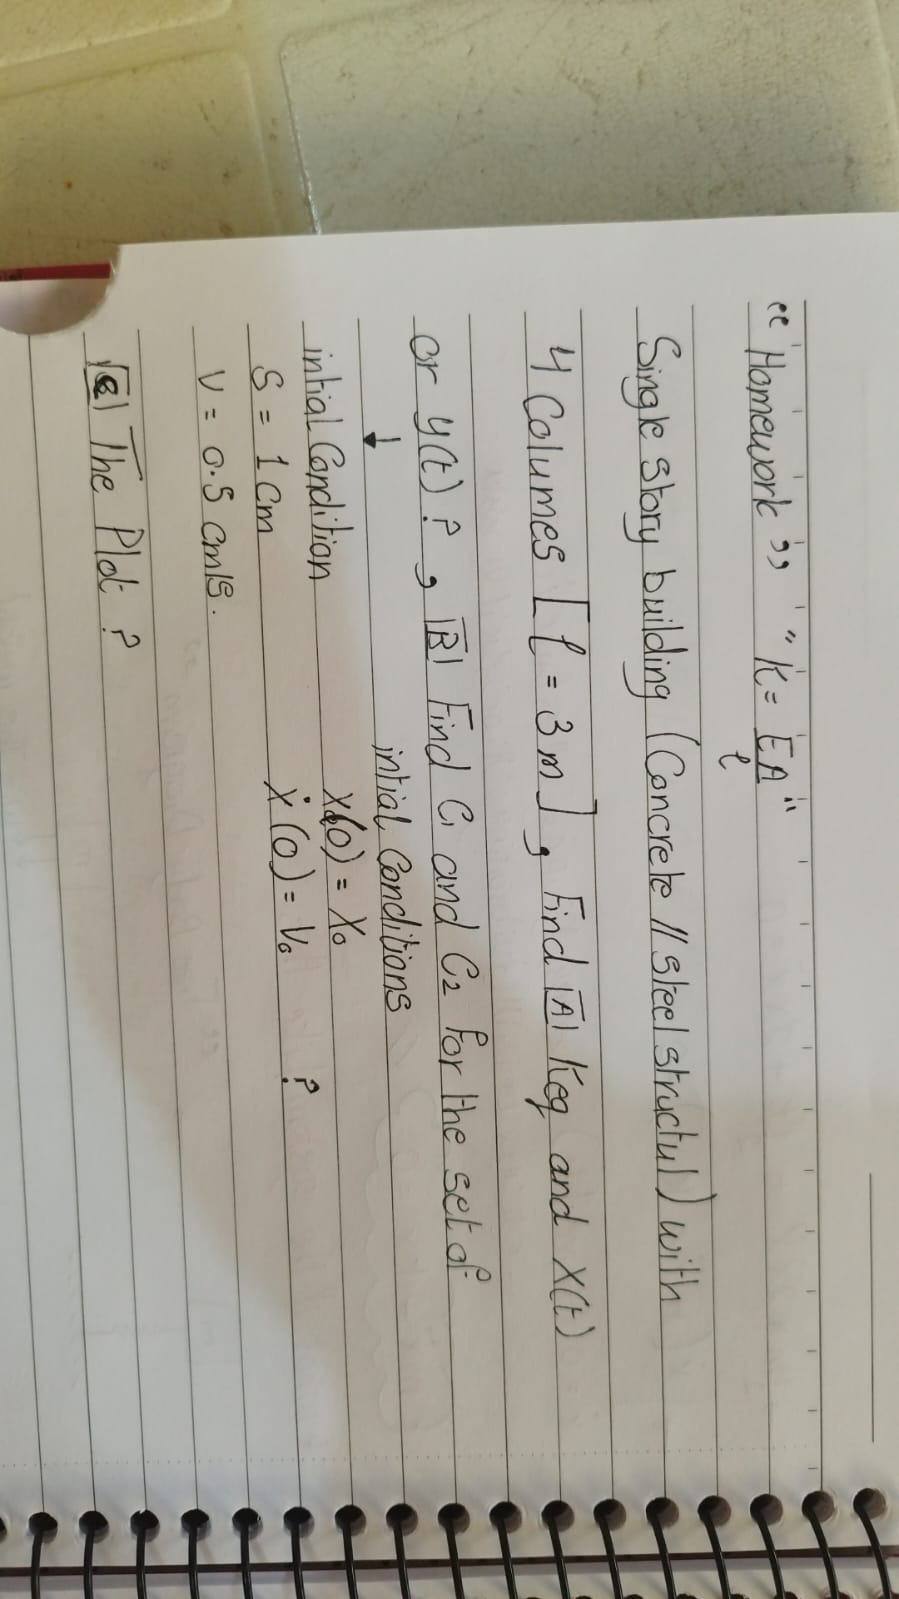 "Homework" "K = EA/ℓ"
Single story building (Concrete // Steel structul) with
4 Columes [ℓ = 3m], Find [A] Keq and X(t)
or y(t)?, [B] Find C₁ and C₂ for the set of
intial Conditions
intial Condition X(0) = X₀
S = 1 cm Ẋ(0) = V₀ ?
V = 0.5 cm/s.
[C] The Plot ?